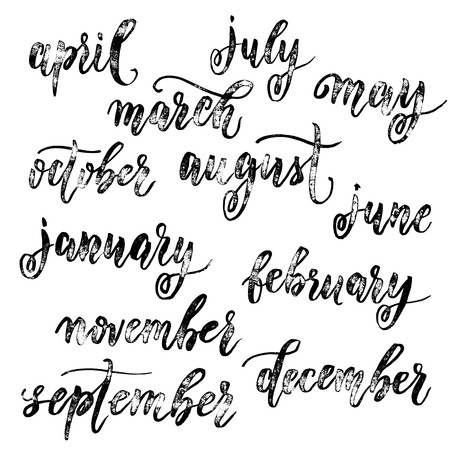 april
july
may
march
october
august
june
january
february
november
december
september